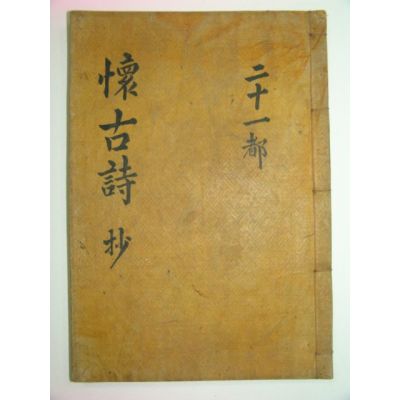 二十一都
懷古詩抄